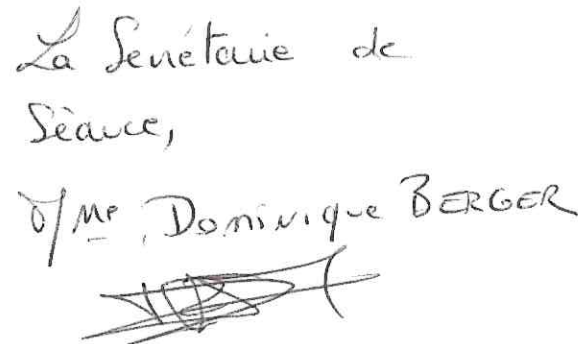 La Secrétaire de
Séance,
Me Dominique BERGER